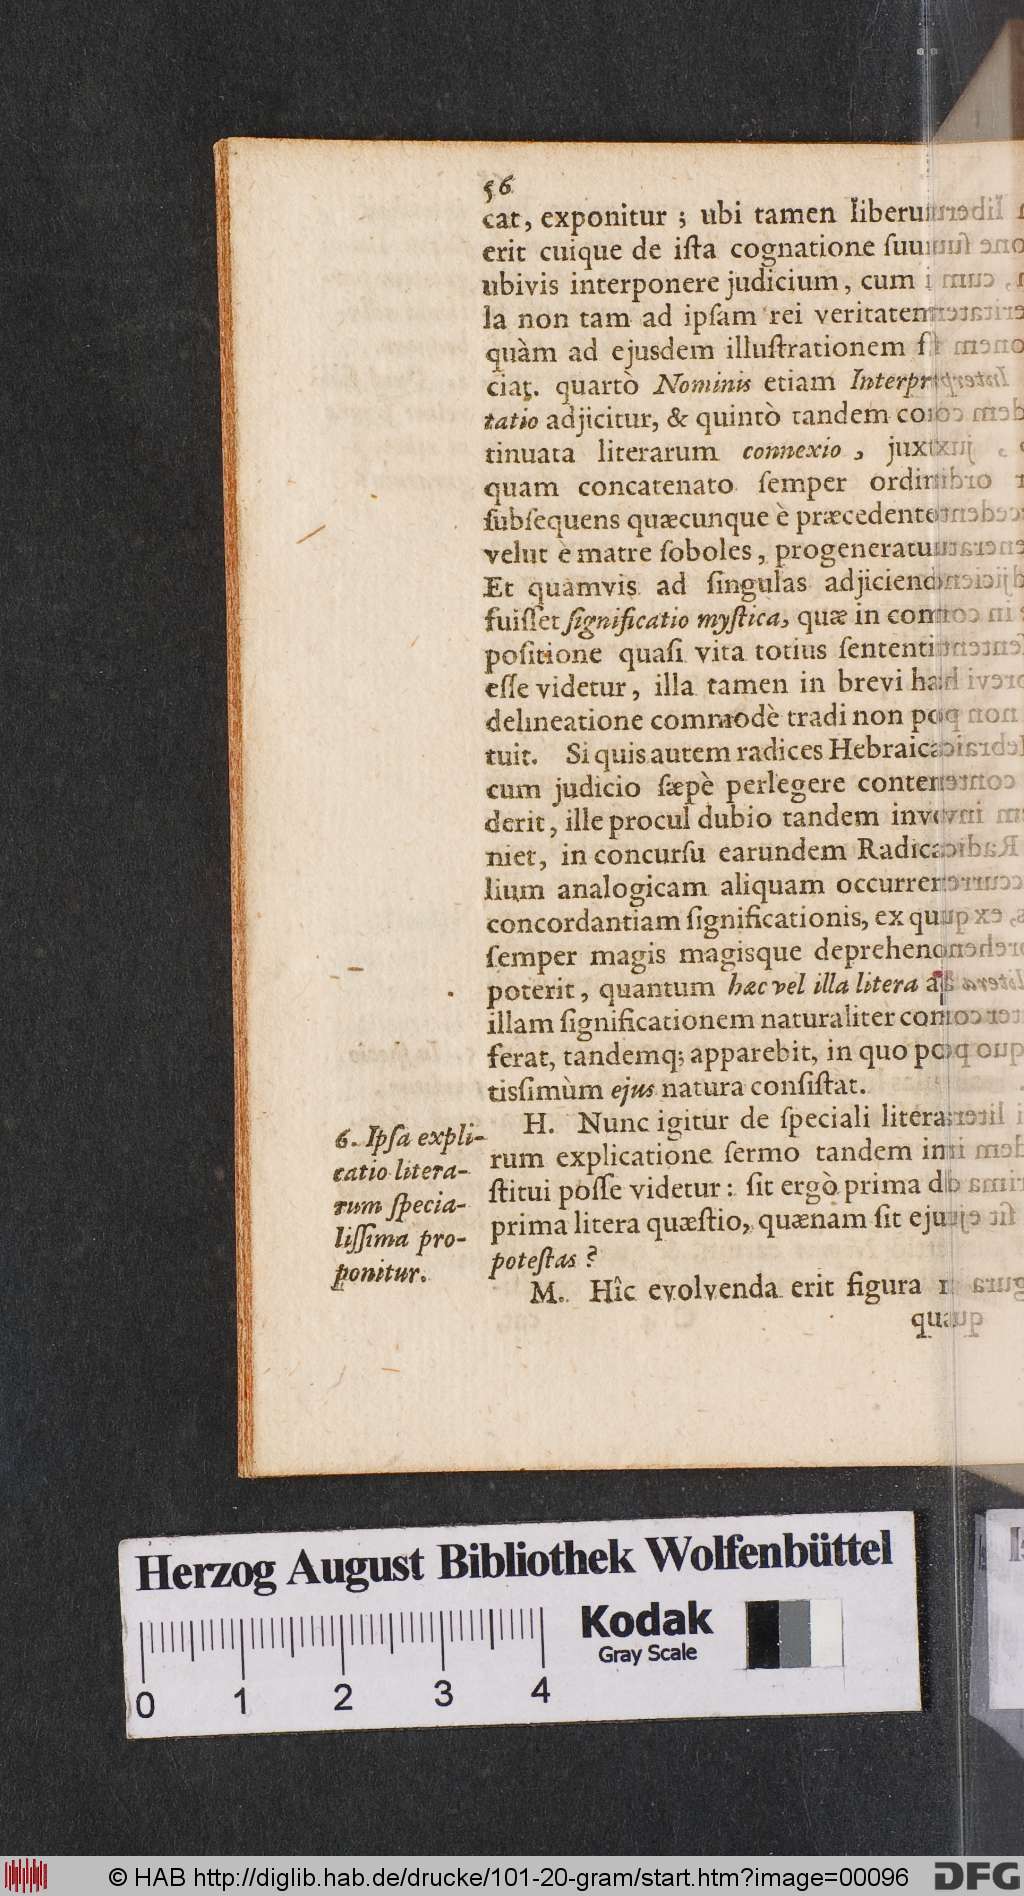 56
cat, exponitur ; ubi tamen liberum
erit cuique de iſta cognatione ſuum
ubivis interponere judicium, cum i
la non tam ad ipſam rei veritatem
quàm ad ejusdem illuſtrationem f
ciat. quartò Nominis etiam Interpr
tatio adjicitur, & quintò tandem co
tinuata literarum connexio, juxt
quam concatenato ſemper ordin
ſubſequens quæcunque è præcedente
velut è matre ſoboles, progeneratu
Et quamvis ad ſingulas adjiciend
fuiſſet ſignificatio myſtica, quæ in com
poſitione quaſi vita totius ſententi
eſſe videtur, illa tamen in brevi ha
delineatione commodè tradi non po
tuit. Si quis autem radices Hebraica
cum judicio ſæpè perlegere conten
derit, ille procul dubio tandem inve
niet, in concurſu earundem Radica
lium analogicam aliquam occurrer
concordantiam ſignificationis, ex qu
ſemper magis magisque deprehend
poterit, quantum hæc vel illa litera a
illam ſignificationem naturaliter con
ferat, tandemq; apparebit, in quo po
tiſſimùm ejus natura conſiſtat.
H. Nunc igitur de ſpeciali litera
rum explicatione ſermo tandem in
ſtitui poſſe videtur: ſit ergò prima d
prima litera quæſtio, quænam ſit eju
poteſtas ?
M. Hîc evolvenda erit figura 1
qua
6. Ipſa expli-
catio litera-
rum ſpecia-
liſſima pro-
ponitur.
Herzog August Bibliothek Wolfenbüttel
Kodak
Gray Scale
0 1 2 3 4
© HAB http://diglib.hab.de/drucke/101-20-gram/start.htm?image=00096
DFG